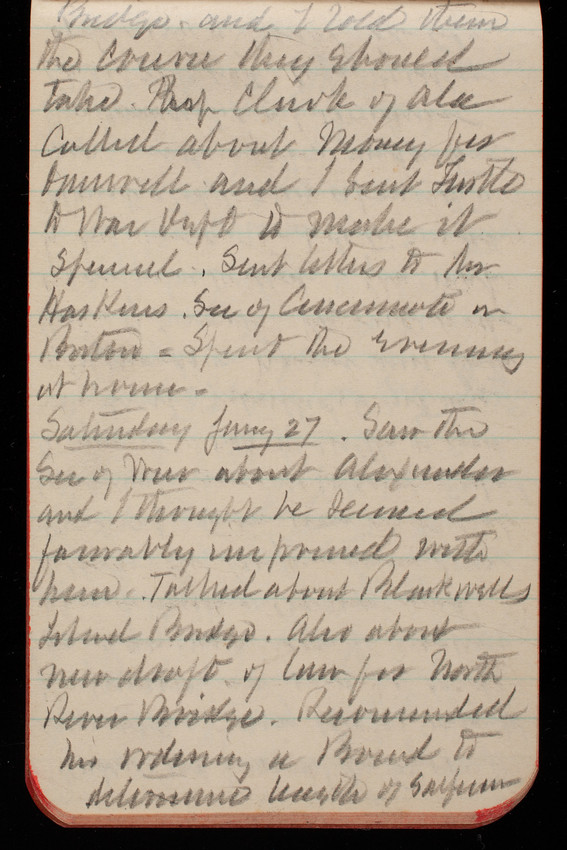 Bridge. and I told them
the course they should
take. Rep Clark of Ala
called about money for
and I sent Tuttle
to War Dept to make it
Special. Sent letters to Mr
Haskins. Sec of Cincinnati or
Boston = Spent the evening
at home.
Saturday Jany 27. Saw the
Sec of War about Alexander
and I thought he seemed
favorably impressed with
him. Talked about Blackwells
Island Bridge. Also about
new draft of law for North
River Bridge. Recommended
his ordering a Board to
determine length of Span